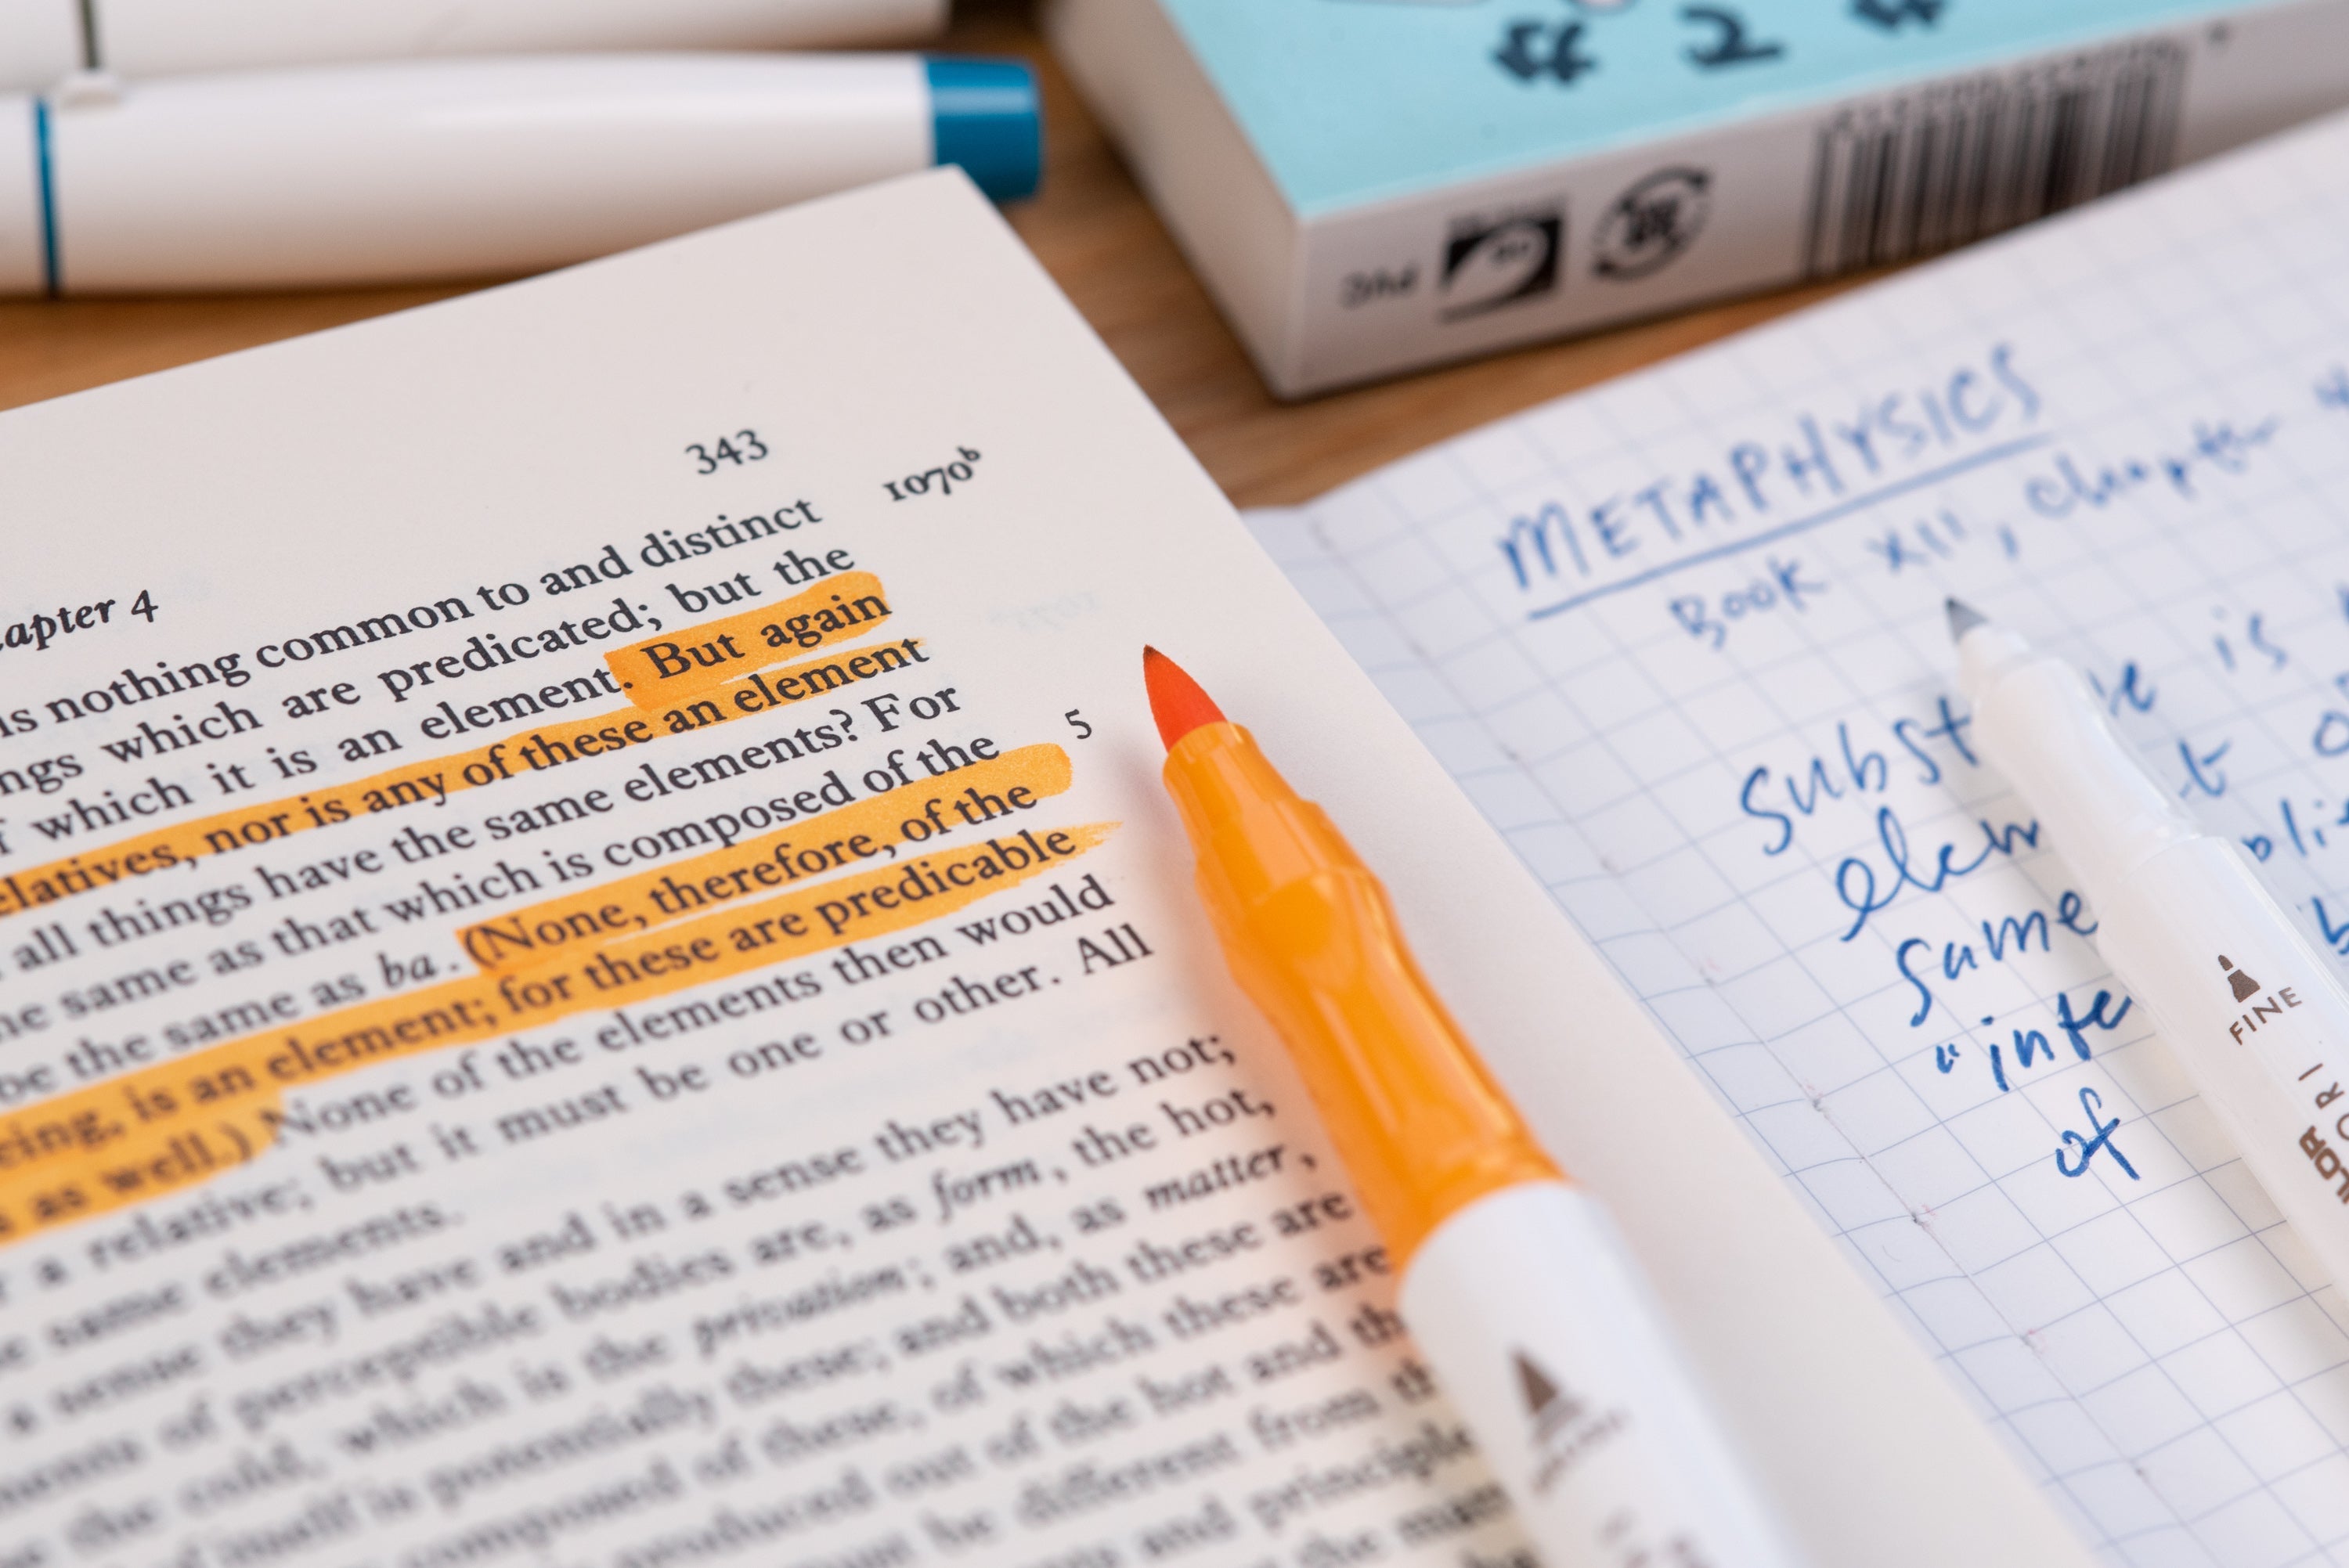 343
1070ᵇ
apter 4
is nothing common to and distinct
ngs which are predicated; but the
which it is an element. But again
elatives, nor is any of these an element
all things have the same elements? For
5
same as that which is composed of the
be the same as ba. (None, therefore, of the
eing, is an element; for these are predicable
as well.) None of the elements then would
a relative; but it must be one or other. All
same elements.
a sense they have and in a sense they have not;
of perceptible bodies are, as form, the hot,
the cold, which is the privation; and, as matter,
of itself is potentially these; and both these are
composed of these, of which these are
produced out of the hot and
be different from
and principle
PVC
METAPHYSICS
Book XII, chapter
Subst
is
elem
same
"inte
of
FINE